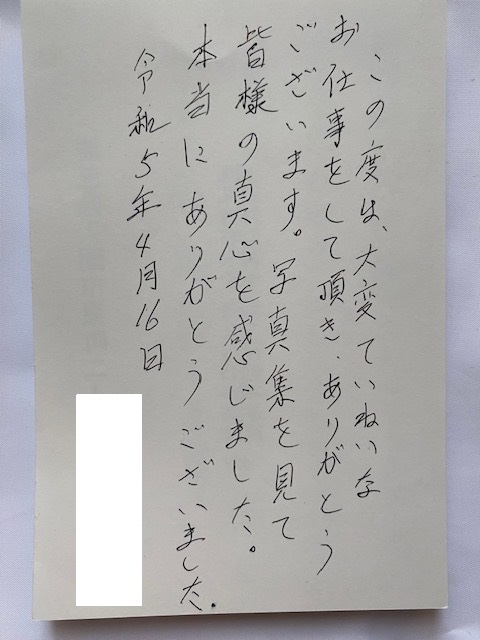 この度は、大変ていねいな
お仕事をして頂き、ありがとう
ございます。写真集を見て
皆様の真心を感じました。
本当にありがとうございました。
令和5年4月16日